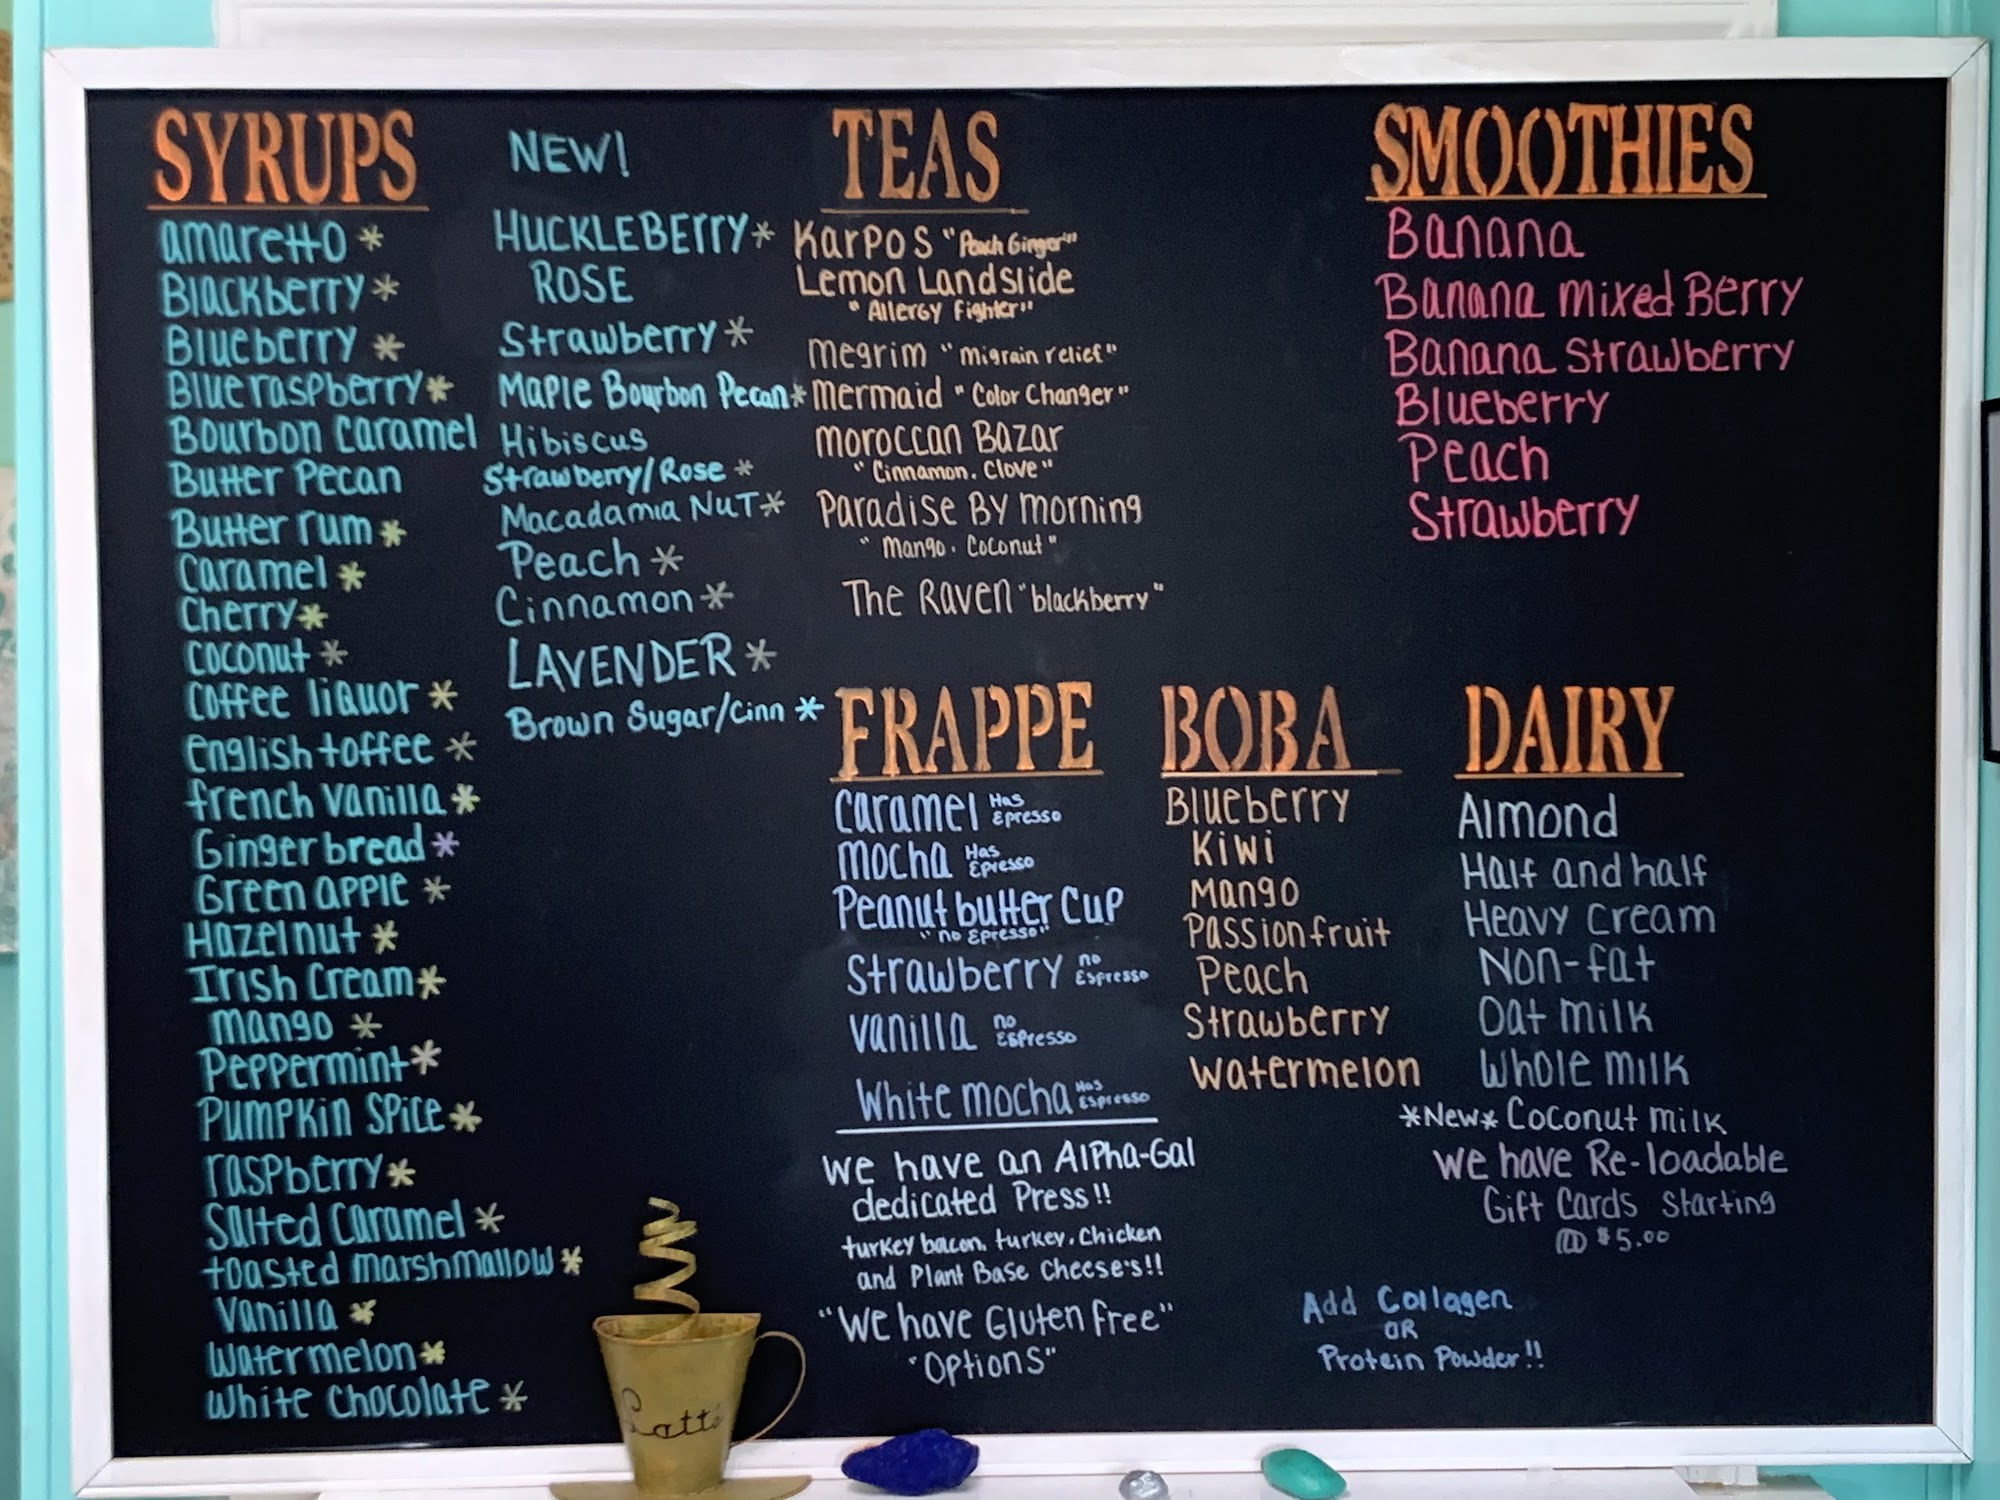 SYRUPS
amaretto *
Blackberry *
Blueberry *
Blue raspberry *
Bourbon caramel
Butter Pecan
Butter rum *
caramel *
cherry *
coconut *
coffee liquor *
english toffee *
french vanilla *
Gingerbread *
Green apple *
Hazelnut *
Irish Cream *
mango *
Peppermint *
Pumpkin Spice *
raspberry *
Salted Caramel *
toasted marshmallow *
Vanilla *
Watermelon *
White Chocolate *
NEW!
HUCKLEBERRY *
ROSE
Strawberry *
Maple Bourbon Pecan *
Hibiscus
Strawberry/Rose *
Macadamia NUT *
Peach *
Cinnamon *
LAVENDER *
Brown Sugar/Cinn *
TEAS
Karpos "Peach Ginger"
Lemon Landslide
"Allergy Fighter"
Megrim "migrain relief"
Mermaid "Color Changer"
Moroccan Bazar
"Cinnamon. Clove"
Paradise By Morning
"Mango. Coconut"
The Raven "blackberry"
SMOOTHIES
Banana
Banana mixed Berry
Banana Strawberry
Blueberry
Peach
Strawberry
FRAPPE
Caramel Has Epresso
Mocha Has Epresso
Peanut butter Cup
"no Epresso"
Strawberry no Espresso
Vanilla no Espresso
White mocha Has Espresso
We have an Alpha-Gal
dedicated Press!!
turkey bacon. turkey. Chicken
and Plant Base Cheese's!!
"We have Gluten free"
"Options"
BOBA
Blueberry
Kiwi
Mango
Passion fruit
Peach
Strawberry
Watermelon
DAIRY
Almond
Half and half
Heavy Cream
Non-fat
Oat milk
Whole milk
*New* Coconut milk
We have Re-loadable
Gift Cards Starting
@ $5.00
Add Collagen
OR
Protein Powder!!
Latte